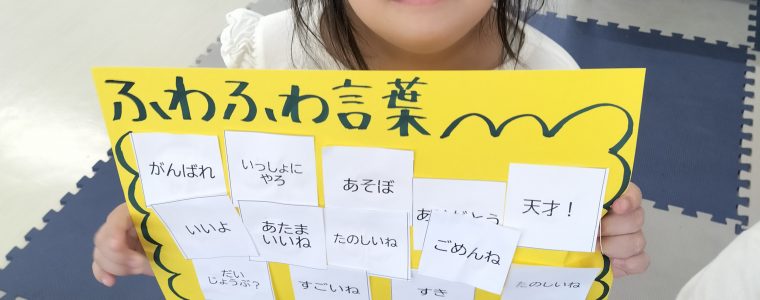 ふわふわ言葉
がんばれ
いっしょに
やろ
あそぼ
天才！
いいよ
あたま
いいね
たのしいね
ごめんね
だい
じょうぶ？
すごいね
すき
たのしいね